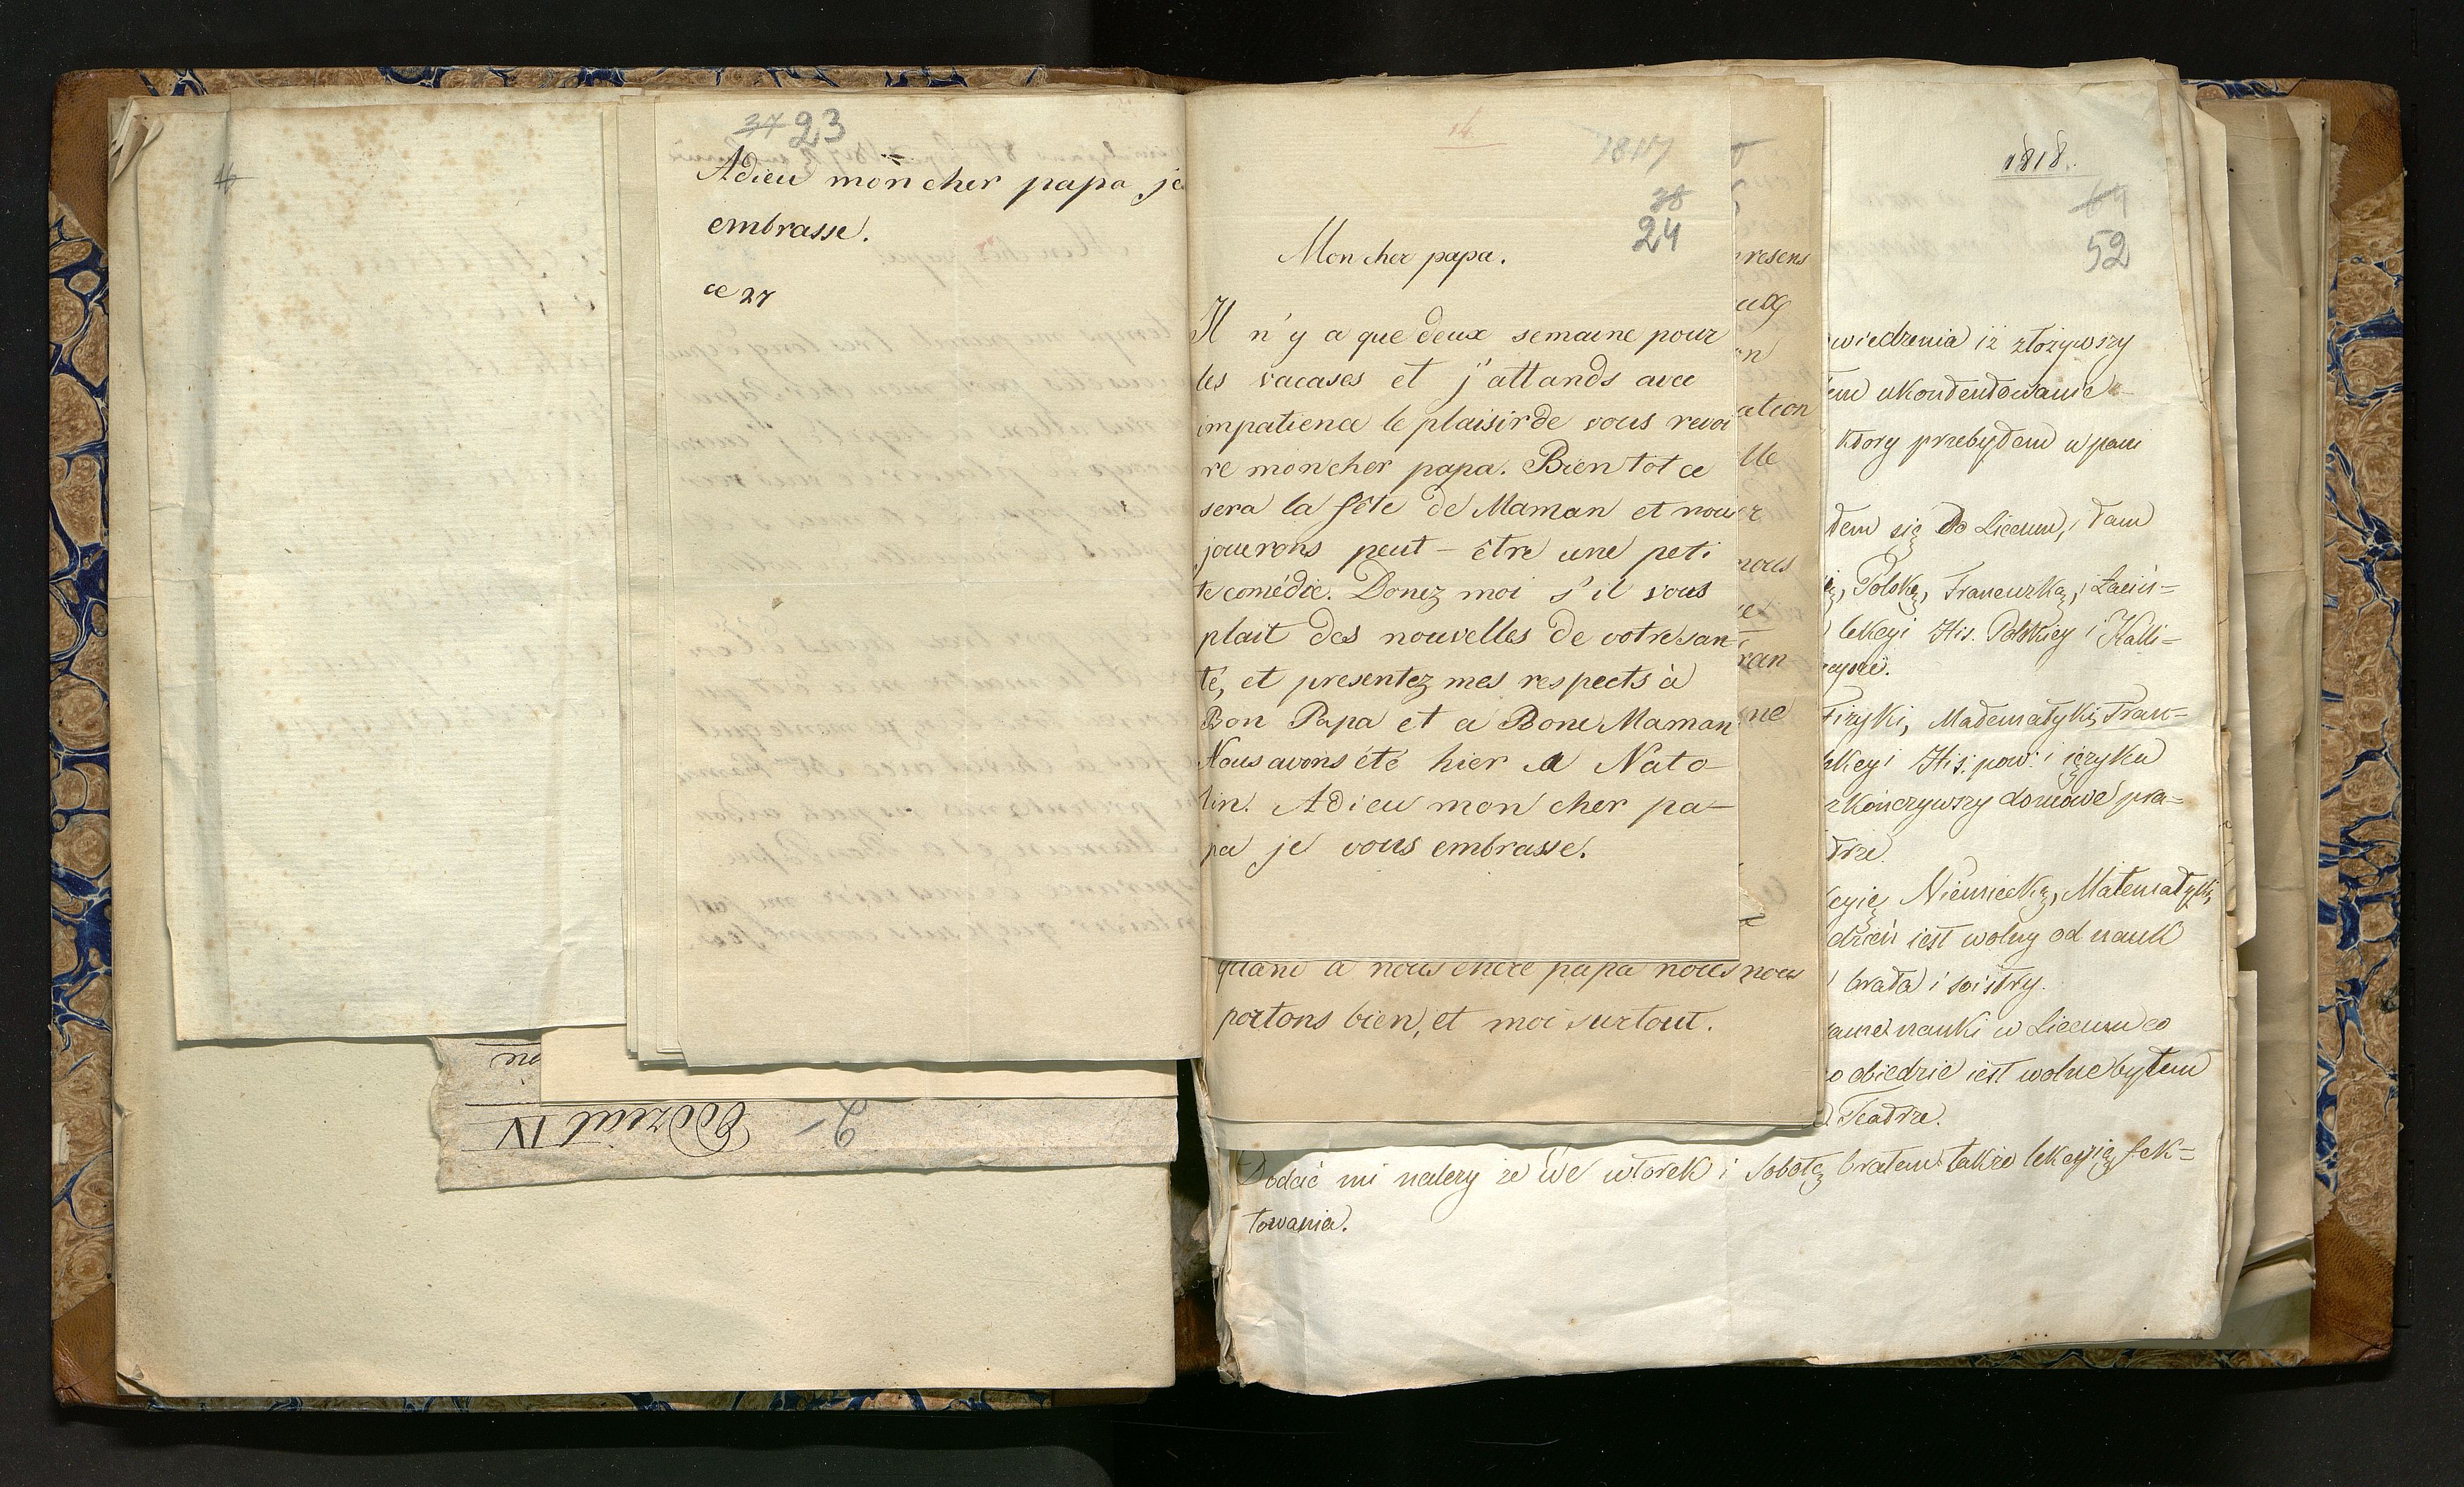 37 23
Adieu mon cher papa je
embrasse.
ce 27
Podział IV
2
1817
38
24
Mon cher papa.
Il n'y a que deux semaine pour
les vacases et j'attands avec
impatience le plaisir de vous revoi
re mon cher papa. Bientot ce
sera la fête de Maman et nous
jouerons peut-être une peti
te comédie. Donez moi s'il vous
plait des nouvelles de votre san
té, et presentez mes respects à
Bon Papa et a Bone Maman
Nous avons été hier a Nato-
lin. Adieu mon cher pa-
pa je vous embrasse.
resens
ation
lle
nous
ran
ne
quand a nous chere papa nous nous
portons bien, et moi surtout.
1818.
64
52
wiedzenia iż złożywszy
em ukontentowanie
ktory przebyłem w pani
łem się do Liceum, tam
Polską, Francuzką, i Łaciń=
lekcyi His. Polskiey i Kalli=
Fizyki, Matematyki, Fran=
lekcyi His. pow: i ięzyka
zkończywszy domowe pra=
trze.
cyię Niemiecką, Matematyki,
dzień iest wolny od nauk
brata i soistry.
ame nauki w Liceum co
o obiedzie iest wolne byłem
Teatrze.
Dodać mi należy że we wtorek i Sobotę brałem także lekcyią fek=
towania.